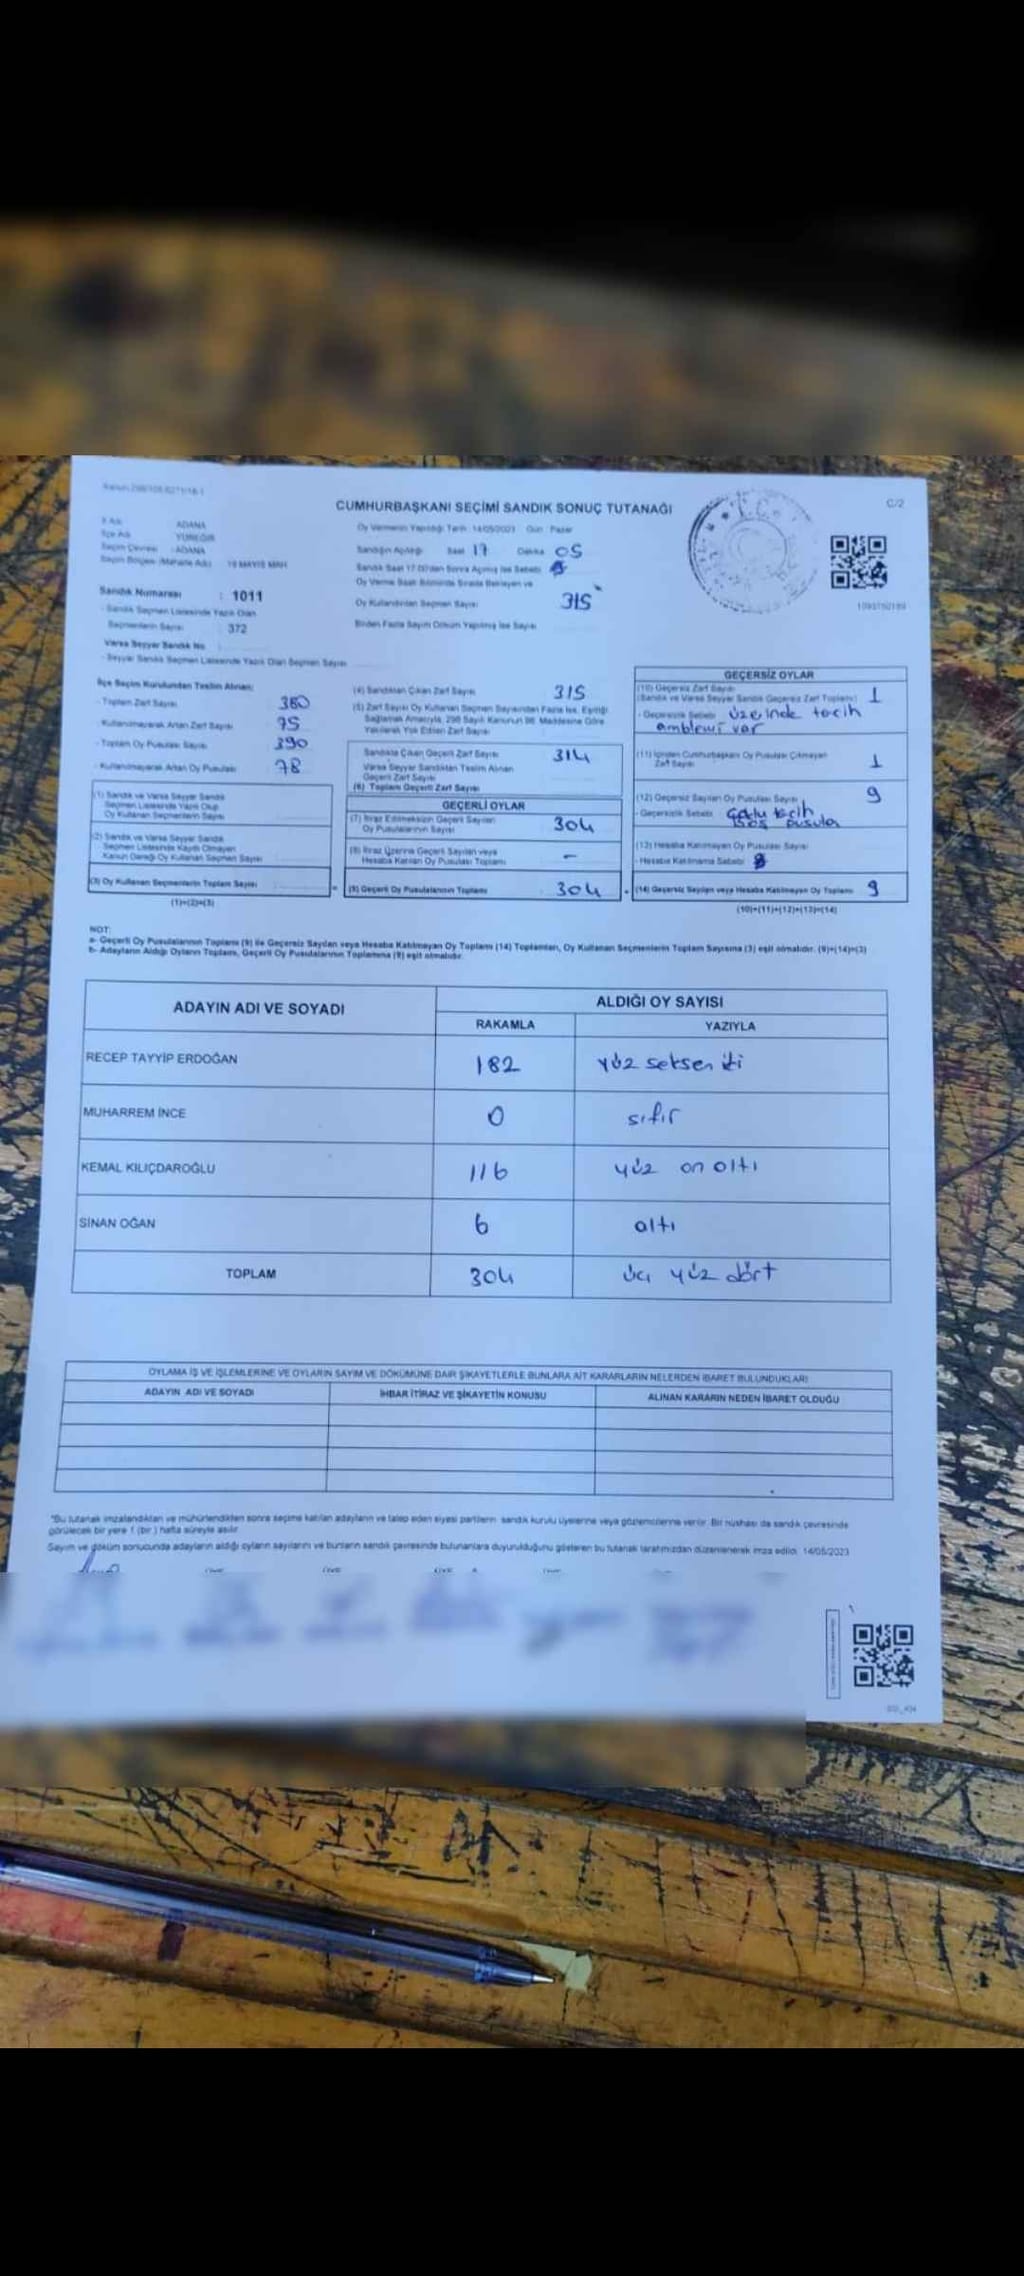 C/2
CUMHURBAŞKANI SEÇİMİ SANDIK SONUÇ TUTANAĞI
İl Adı ADANA
İlçe Adı YÜREĞİR
Seçim Çevresi : ADANA
Seçim Bölgesi (Mahalle Adı) 19 MAYIS MAH
Sandık Numarası : 1011
- Sandık Seçmen Listesinde Yazılı Olan
Seçmenlerin Sayısı : 372
Varsa Seyyar Sandık No
- Seyyar Sandık Seçmen Listesinde Yazılı Olan Seçmen Sayısı
Oy Vermenin Yapıldığı Tarih 14/05/2023 Gün Pazar
Sandığın Açıldığı Saat 17 Dakika 05
Sandık Saat 17.00'den Sonra Açılmış İse Sebebi
Oy Verme Saati Bitiminde Sırada Bekleyen ve
Oy Kullandırılan Seçmen Sayısı 315
Birden Fazla Sayım Döküm Yapılmış İse Sayısı
İlçe Seçim Kurulundan Teslim Alınan:
- Toplam Zarf Sayısı 380
- Kullanılmayarak Artan Zarf Sayısı 75
- Toplam Oy Pusulası Sayısı 390
- Kullanılmayarak Artan Oy Pusulası 78
(1) Sandık ve Varsa Seyyar Sandık
Seçmen Listesinde Yazılı Olup
Oy Kullanan Seçmenlerin Sayısı
(2) Sandık ve Varsa Seyyar Sandık
Seçmen Listesinde Kaydı Olmayan
Kanun Gereği Oy Kullanan Seçmen Sayısı
(3) Oy Kullanan Seçmenlerin Toplam Sayısı
(1)+(2)=(3)
(4) Sandıktan Çıkan Zarf Sayısı 315
(5) Zarf Sayısı Oy Kullanan Seçmen Sayısından Fazla İse, Eşitliği
Sağlamak Amacıyla, 298 Sayılı Kanunun 98. Maddesine Göre
Yakılarak Yok Edilen Zarf Sayısı
Sandıkta Çıkan Geçerli Zarf Sayısı 314
Varsa Seyyar Sandıktan Teslim Alınan
Geçerli Zarf Sayısı
(6) Toplam Geçerli Zarf Sayısı
GEÇERLİ OYLAR
(7) İtiraz Edilmeksizin Geçerli Sayılan
Oy Pusulalarının Sayısı 304
(8) İtiraz Üzerine Geçerli Sayılan veya
Hesaba Katılan Oy Pusulası Toplamı -
(9) Geçerli Oy Pusulalarının Toplamı 304
GEÇERSİZ OYLAR
(10) Geçersiz Zarf Sayısı
(Sandık ve Varsa Seyyar Sandık Geçersiz Zarf Toplamı) 1
- Geçersizlik Sebebi üzerinde tercih
amblemi var
(11) İçinden Cumhurbaşkanı Oy Pusulası Çıkmayan
Zarf Sayısı 1
(12) Geçersiz Sayılan Oy Pusulası Sayısı 9
- Geçersizlik Sebebi çoklu tercih
boş pusula
(13) Hesaba Katılmayan Oy Pusulası Sayısı
- Hesaba Katılmama Sebebi
(14) Geçersiz Sayılan veya Hesaba Katılmayan Oy Toplamı 9
(10)+(11)+(12)+(13)=(14)
NOT:
a- Geçerli Oy Pusulalarının Toplamı (9) ile Geçersiz Sayılan veya Hesaba Katılmayan Oy Toplamı (14) Toplamları, Oy Kullanan Seçmenlerin Toplam Sayısına (3) eşit olmalıdır. (9)+(14)=(3)
b- Adayların Aldığı Oyların Toplamı, Geçerli Oy Pusulalarının Toplamına (9) eşit olmalıdır.
ADAYIN ADI VE SOYADI ALDIĞI OY SAYISI
RAKAMLA YAZIYLA
RECEP TAYYİP ERDOĞAN 182 yüz seksen iki
MUHARREM İNCE 0 sıfır
KEMAL KILIÇDAROĞLU 116 yüz on altı
SİNAN OĞAN 6 altı
TOPLAM 304 üç yüz dört
OYLAMA İŞ VE İŞLEMLERİNE VE OYLARIN SAYIM VE DÖKÜMÜNE DAİR ŞİKAYETLERLE BUNLARA AİT KARARLARIN NELERDEN İBARET BULUNDUKLARI
ADAYIN ADI VE SOYADI İHBAR İTİRAZ VE ŞİKAYETİN KONUSU ALINAN KARARIN NEDEN İBARET OLDUĞU
"Bu tutanak imzalandıktan ve mühürlendikten sonra seçime katılan adayların ve talep eden siyasi partilerin sandık kurulu üyelerine veya gözlemcilerine verilir. Bir nüshası da sandık çevresinde
görülecek bir yere 1 (bir ) hafta süreyle asılır
Sayım ve döküm sonucunda adayların aldığı oyların sayılarını ve bunların sandık çevresinde bulunanlara duyurulduğunu gösteren bu tutanak tarafımızdan düzenlenerek imza edildi. 14/05/2023